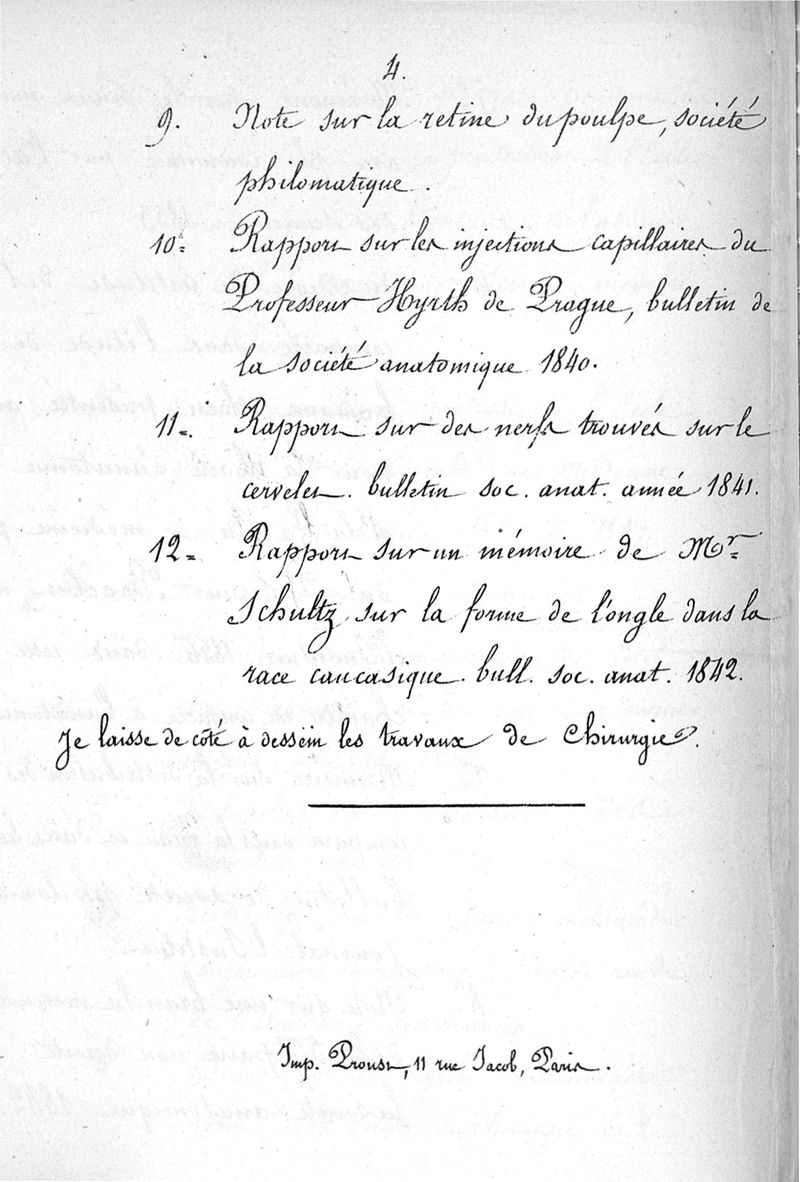 4.
9. Note sur la retine du poulpe, société
philomatique.
10° Rapport sur les injections capillaires du
Professeur Hyrth de Prague, bulletin de
la société anatomique 1840.
11=. Rapport sur des nerfs trouvés sur le
cervelet. bulletin soc. anat. année 1841.
12= Rapport sur un mémoire de Mr
Schultz sur la forme de l'ongle dans la
race caucasique. bull. soc. anat. 1842.
Je laisse de côté à dessein les travaux de Chirurgie.
Imp. Proust, 11 rue Jacob, Paris.